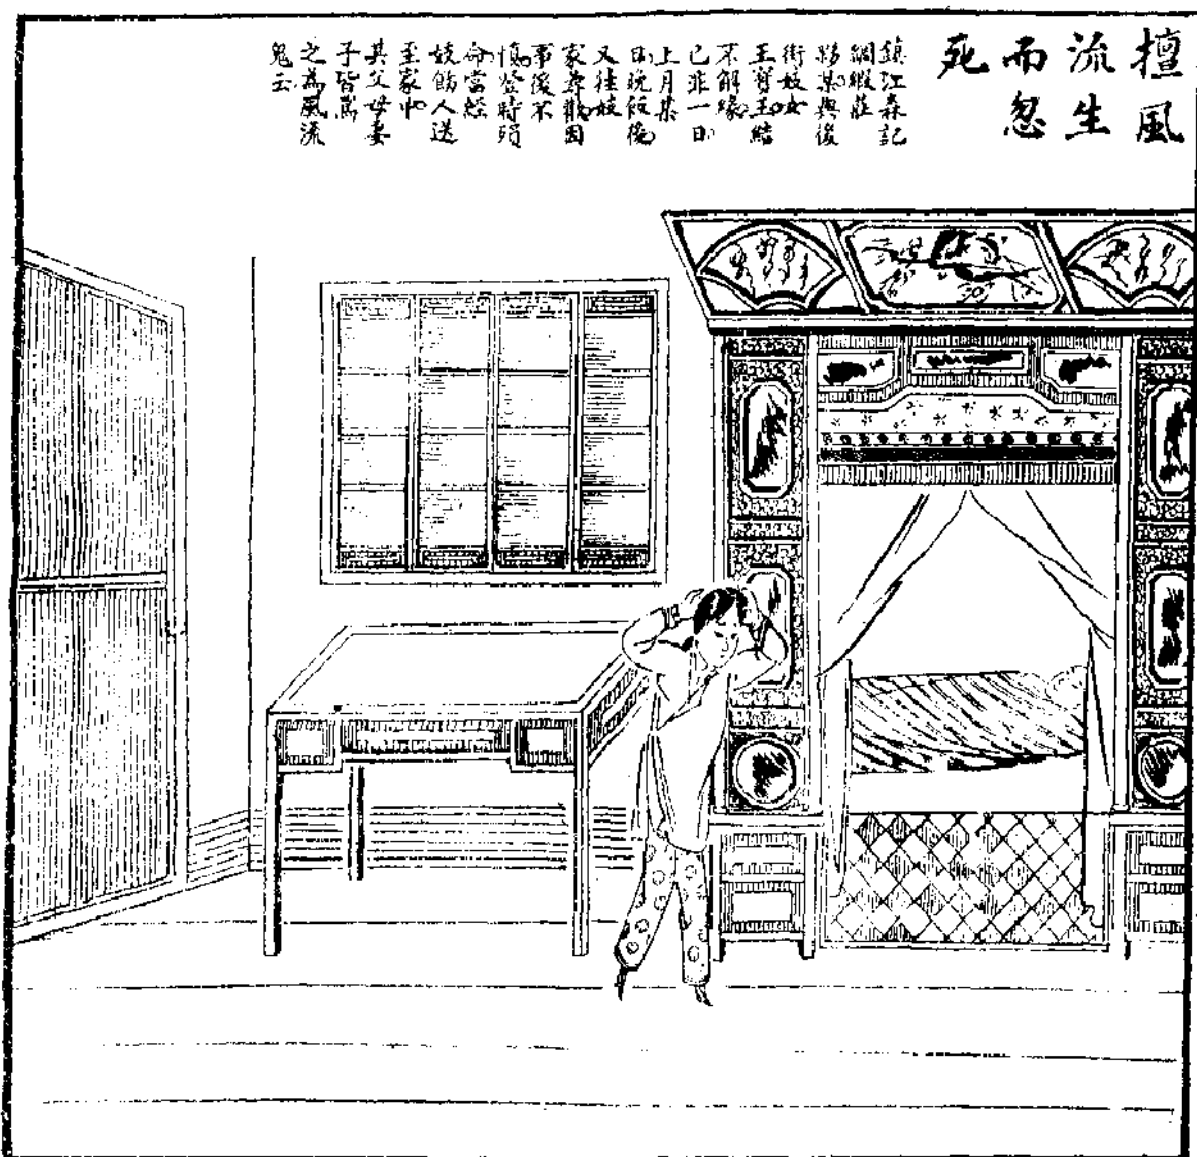 擅風
流生
而忽
死
鎮江森記
綢緞莊
夥某與後
街妓女
王寶玉結
不解緣
已非一日
上月某
日晚飯後
又往妓
家尋歡因
事後不
慎登時殞
命當經
妓飭人送
至家中
其父母妻
子皆罵
之為風流
鬼云